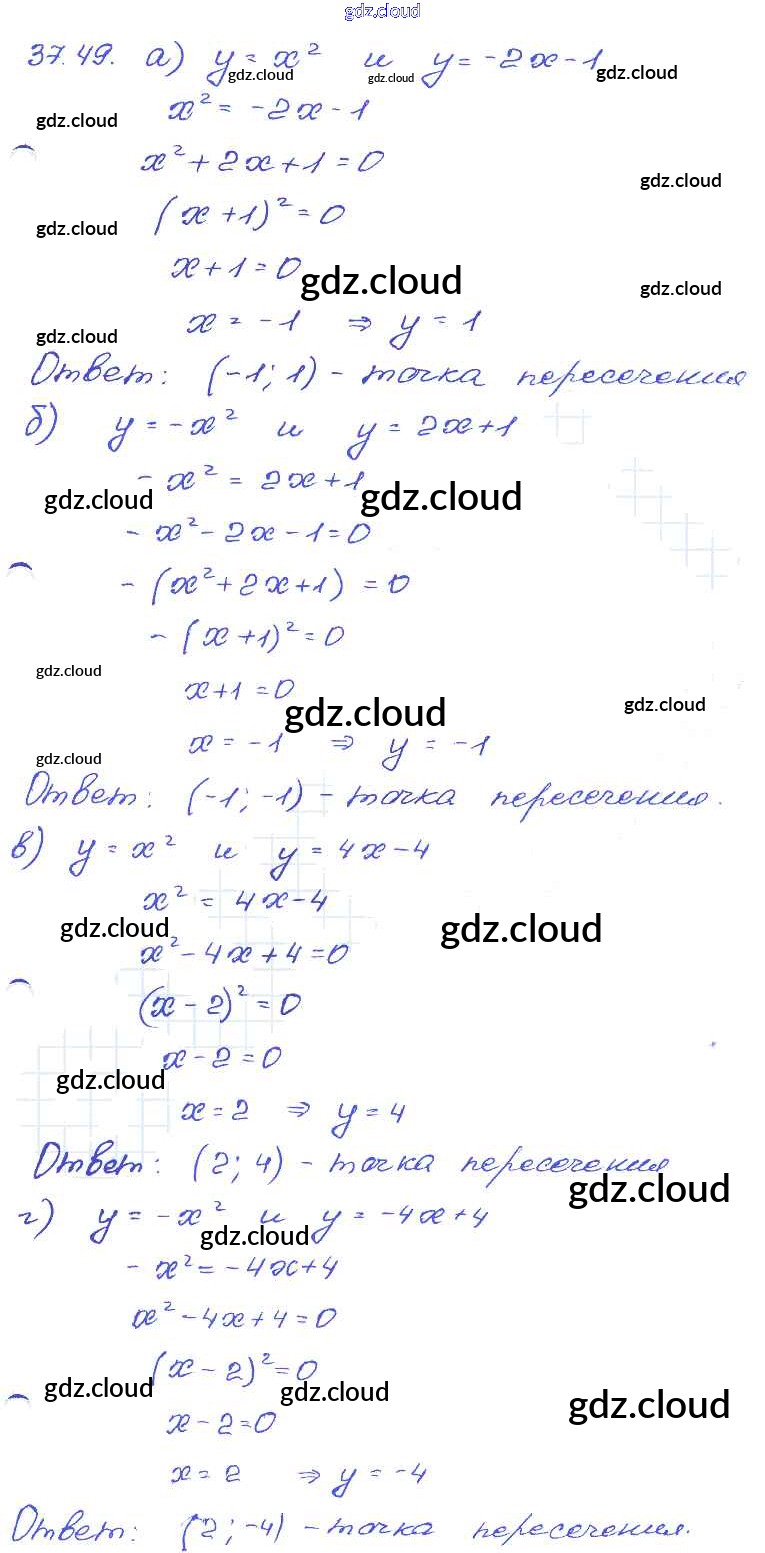 gdz.cloud
37.49. а) y = x² и y = -2x - 1
gdz.cloud gdz.cloud gdz.cloud
x² = -2x - 1
gdz.cloud
x² + 2x + 1 = 0
gdz.cloud
(x + 1)² = 0
gdz.cloud
x + 1 = 0
gdz.cloud gdz.cloud
x = -1 ⇒ y = 1
gdz.cloud
Ответ: (-1; 1) - точка пересечения
б) y = -x² и y = 2x + 1
- x² = 2x + 1
gdz.cloud gdz.cloud
- x² - 2x - 1 = 0
- (x² + 2x + 1) = 0
- (x + 1)² = 0
gdz.cloud
x + 1 = 0
gdz.cloud gdz.cloud
x = -1 ⇒ y = -1
gdz.cloud
Ответ: (-1; -1) - точка пересечения.
в) y = x² и y = 4x - 4
x² = 4x - 4
gdz.cloud gdz.cloud
x² - 4x + 4 = 0
(x - 2)² = 0
x - 2 = 0
gdz.cloud
x = 2 ⇒ y = 4
Ответ: (2; 4) - точка пересечения
gdz.cloud
г) y = -x² и y = -4x + 4
gdz.cloud
- x² = -4x + 4
x² - 4x + 4 = 0
(x - 2)² = 0
gdz.cloud gdz.cloud gdz.cloud
x - 2 = 0
x = 2 ⇒ y = -4
Ответ: (2; -4) - точка пересечения.